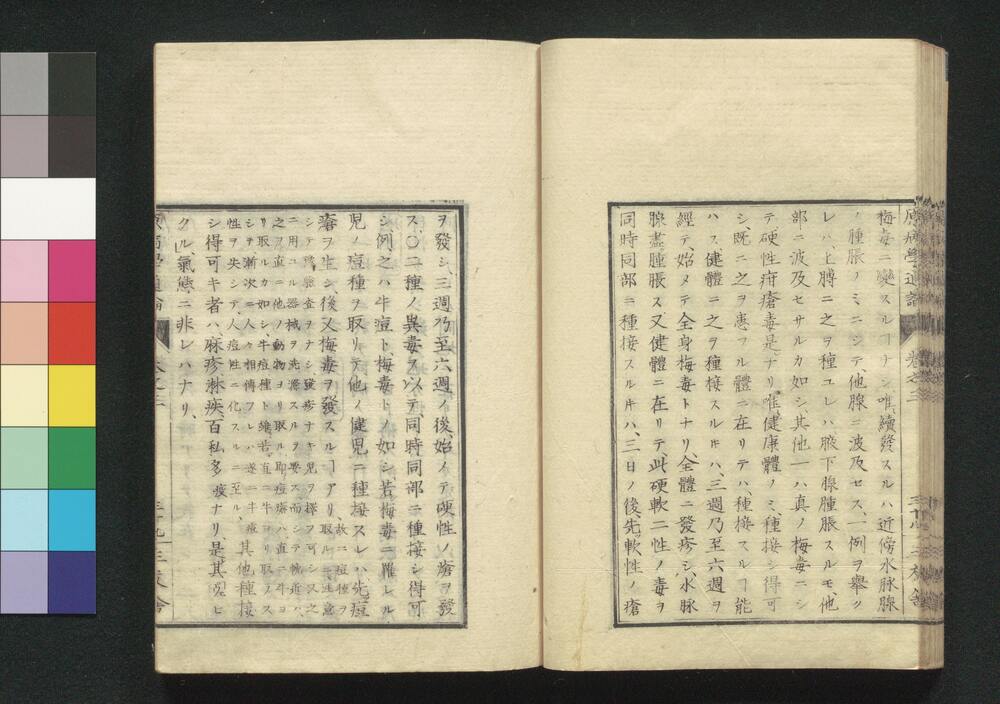 梅毒ニ變スルヿナシ唯續發スルハ近傍水脉腺
ノ腫脹ノミニシテ、他腺ニ波及セス、一例ヲ舉ク
レハ、上膊ニ之ヲ種ユレハ腋下腺腫脹スルモ、他
部ニ波及セサルカ如シ其他一ハ真ノ梅毒ニシ
テ硬性疳瘡毒是ナリ、唯健康體ノミ、種接シ得可
シ、既ニ之ヲ患フル體ニ在リテハ、種接スルヿ能
ハス、健體ニ之ヲ種接スル𪜈ハ、三週乃至六週ヲ
經テ、始メテ全身梅毒トナリ全體ニ發疹シ、水脉
腺盡腫脹ス又健體ニ在リテ、此硬軟二性ノ毒ヲ
同時同部ニ種接スル𪜈ハ、三日ノ後、先軟性ノ瘡
ヲ發シ、三週乃至六週ノ後、始メテ硬性ノ瘡ヲ發
ス、〇二種ノ異毒ヲ以テ、同時同部ニ種接シ得可
シ、例之ハ牛痘ト、梅毒トノ如シ、若梅毒ニ罹レル
兒ノ痘種ヲ取リテ、他ノ健兒ニ種接スレハ先痘
瘡ヲ生シ後又梅毒ヲ發スルヿアリ、故ニ痘種ヲ取ルニ注意
シテ檢査ヲナシ發疹ナキ兒ヲ擇フ可シ又之
ニ用ユル器械ヲ洗滌スルヲ要ス而シテ輓近ハ、
之ヲ直ニ他ノ動物ヨリ取ル即痘瘡ハ、直ニ牛ヨ
リ取ルカ如シ、牛痘種ト雖、若直ニ牛ヨリ取ラス
シテ漸次ニ人々相傳フレハ遂ニ牛痘
性ヲ失シテ、人痘性ニ化スルニ至ル、其他種接
シ得可キ者ハ、麻疹淋疾、百私多疫ナリ、是其傳ヒ
クル氣態ニ非レハナリ、